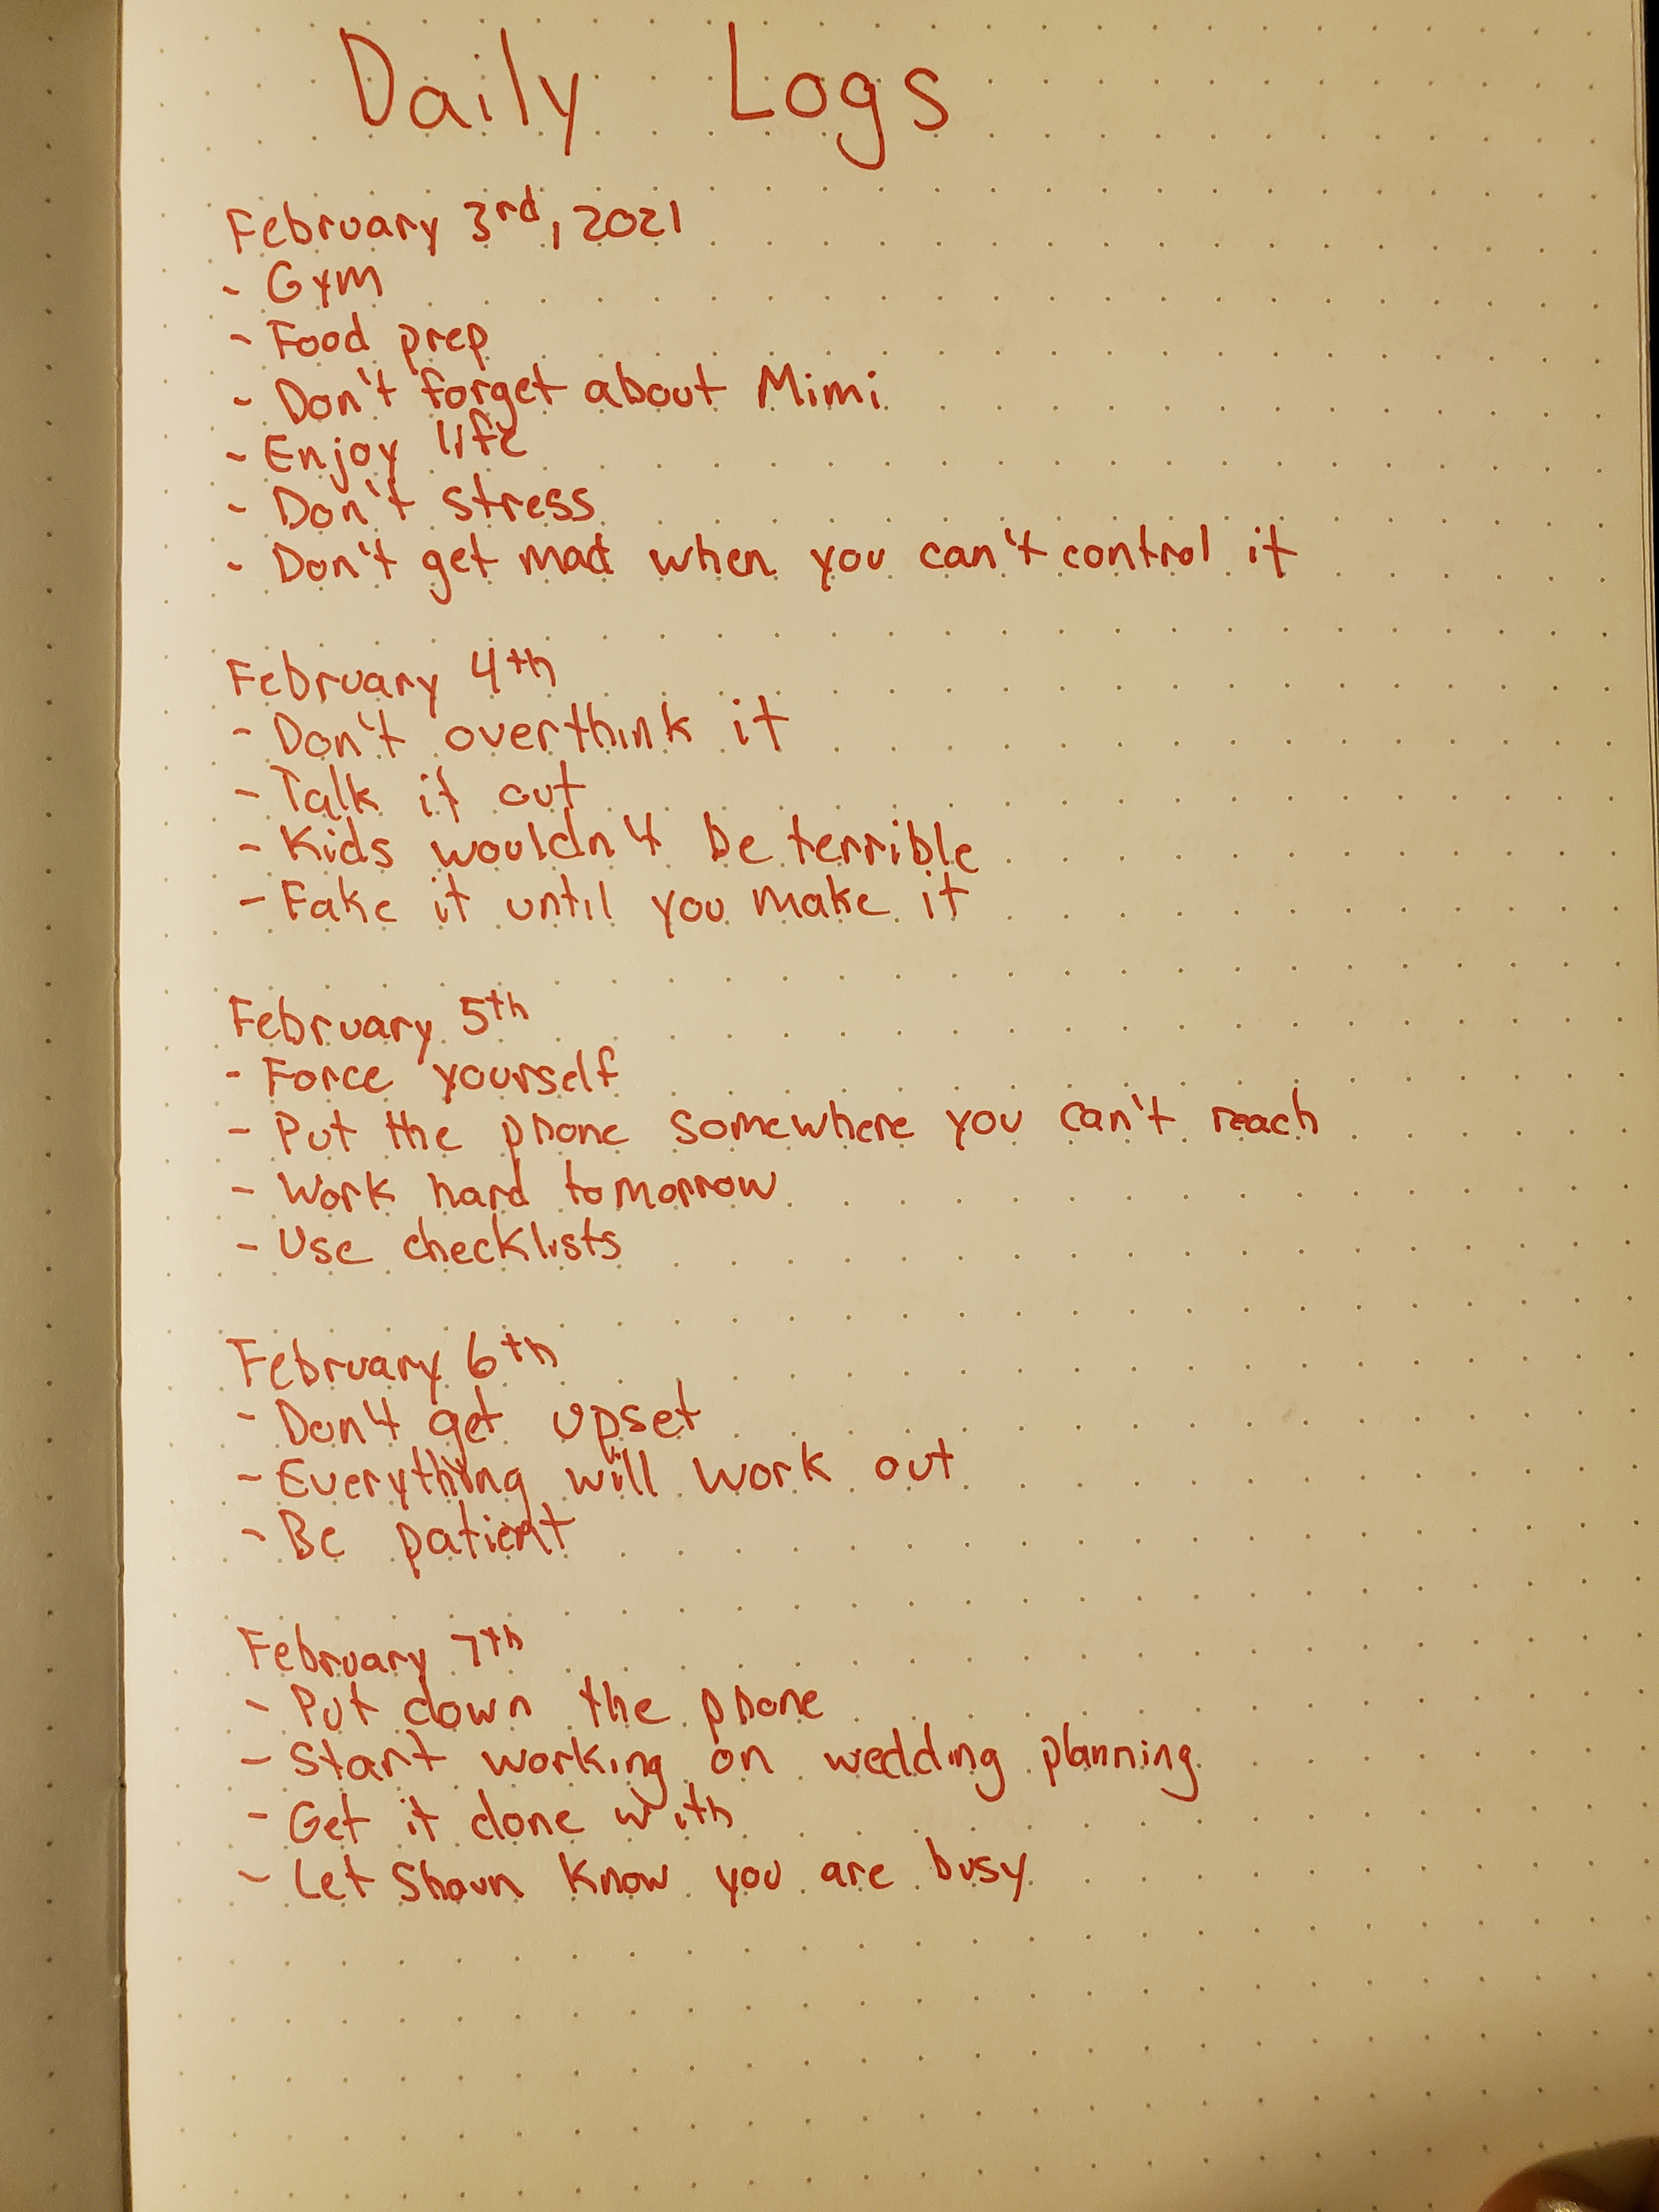 Daily Logs
February 3rd, 2021
- Gym
- Food prep
- Don't forget about Mimi
- Enjoy life
- Don't stress
- Don't get mad when you can't control it
February 4th
- Don't overthink it
- Talk it out
- Kids wouldn't be terrible
- Fake it until you make it
February 5th
- Force yourself
- Put the phone somewhere you can't reach
- Work hard tomorrow
- Use checklists
February 6th
- Don't get upset
- Everything will work out
- Be patient
February 7th
- Put down the phone
- Start working on wedding planning
- Get it done with
- Let Shaun know you are busy